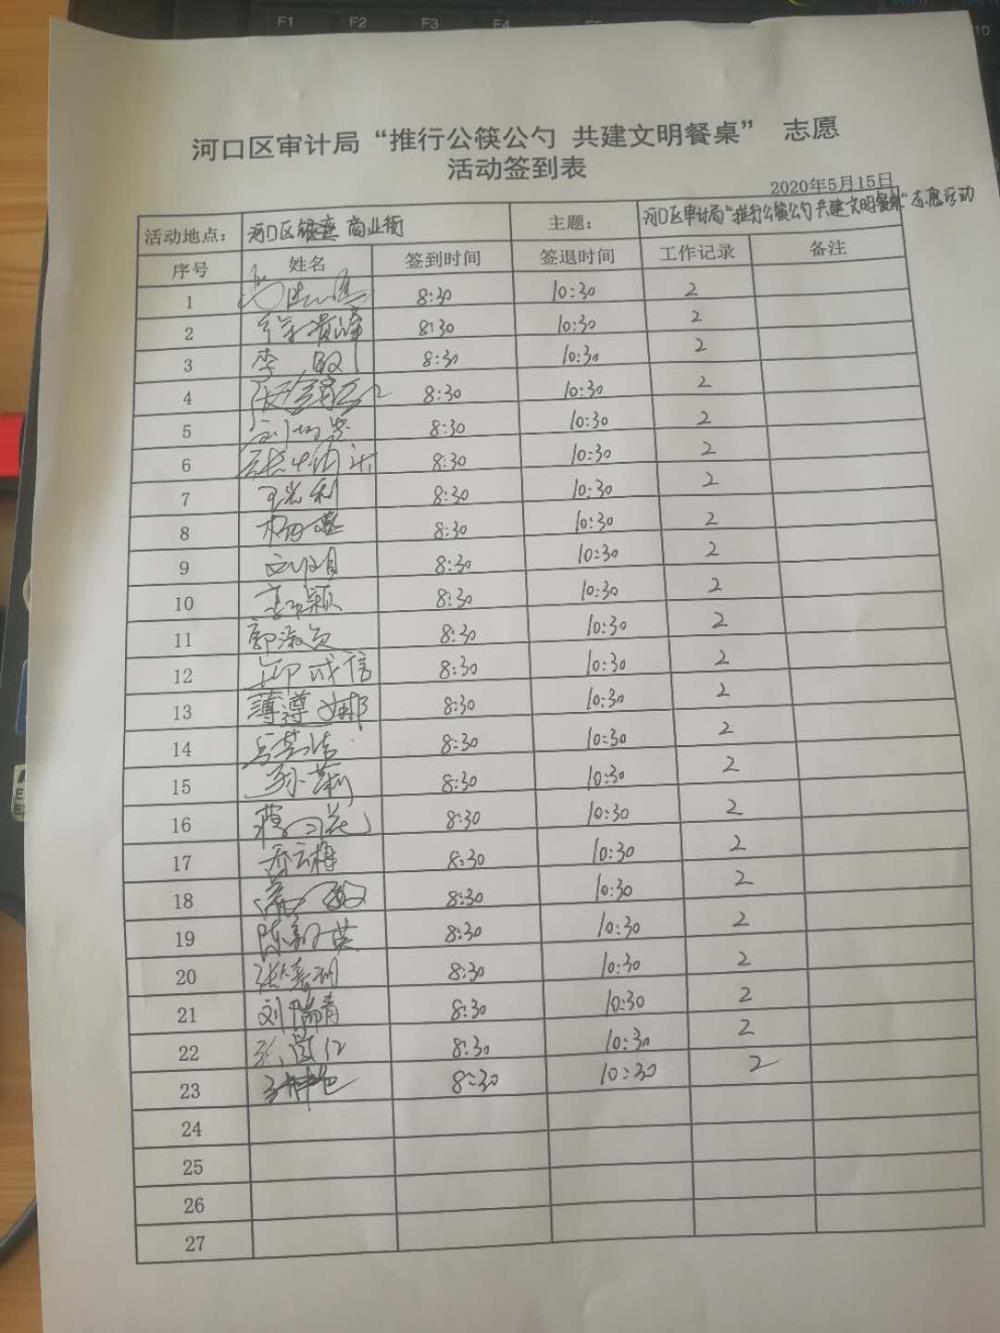 F1 F2 F3 F4
河口区审计局“推行公筷公勺 共建文明餐桌” 志愿
活动签到表
2020年5月15日
活动地点： 河口区 商业街 主题： 河口区审计局“推行公筷公勺共建文明餐桌”志愿活动
序号 姓名 签到时间 签退时间 工作记录 备注
1 8:30 10:30 2
2 8:30 10:30 2
3 李敏 8:30 10:30 2
4 8:30 10:30 2
5 8:30 10:30 2
6 8:30 10:30 2
7 王光利 8:30 10:30 2
8 8:30 10:30 2
9 8:30 10:30 2
10 8:30 10:30 2
11 郭淑贞 8:30 10:30 2
12 8:30 10:30 2
13 薄遵娜 8:30 10:30 2
14 8:30 10:30 2
15 孙莉 8:30 10:30 2
16 8:30 10:30 2
17 乔云梅 8:30 10:30 2
18 8:30 10:30 2
19 陈新英 8:30 10:30 2
20 8:30 10:30 2
21 刘瑞青 8:30 10:30 2
22 8:30 10:30 2
23 8:30 10:30 2
24
25
26
27